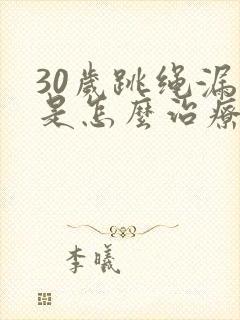 30歲跳绳漏
是怎麼治療
李曦